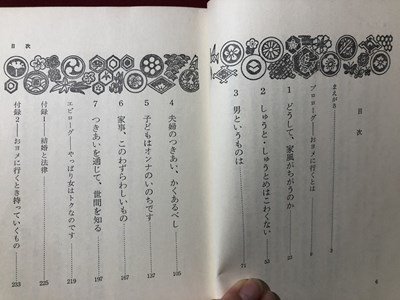 目次
まえがき 3
プロローグ――おヨメに行くとは 9
1 どうして、家風がちがうのか 23
2 しゅうと・しゅうとめはこわくない 53
3 男というものは 71
6
目次
4 夫婦のつきあい、かくあるべし 105
5 子どもはオンナのいのちです 137
6 家事、このわずらわしいもの 167
7 つきあいを通じて、世間を知る 197
エピローグ――やっぱり女はトクなのです 219
付録1――結婚と法律 225
付録2――おヨメに行くとき持っていくもの 233